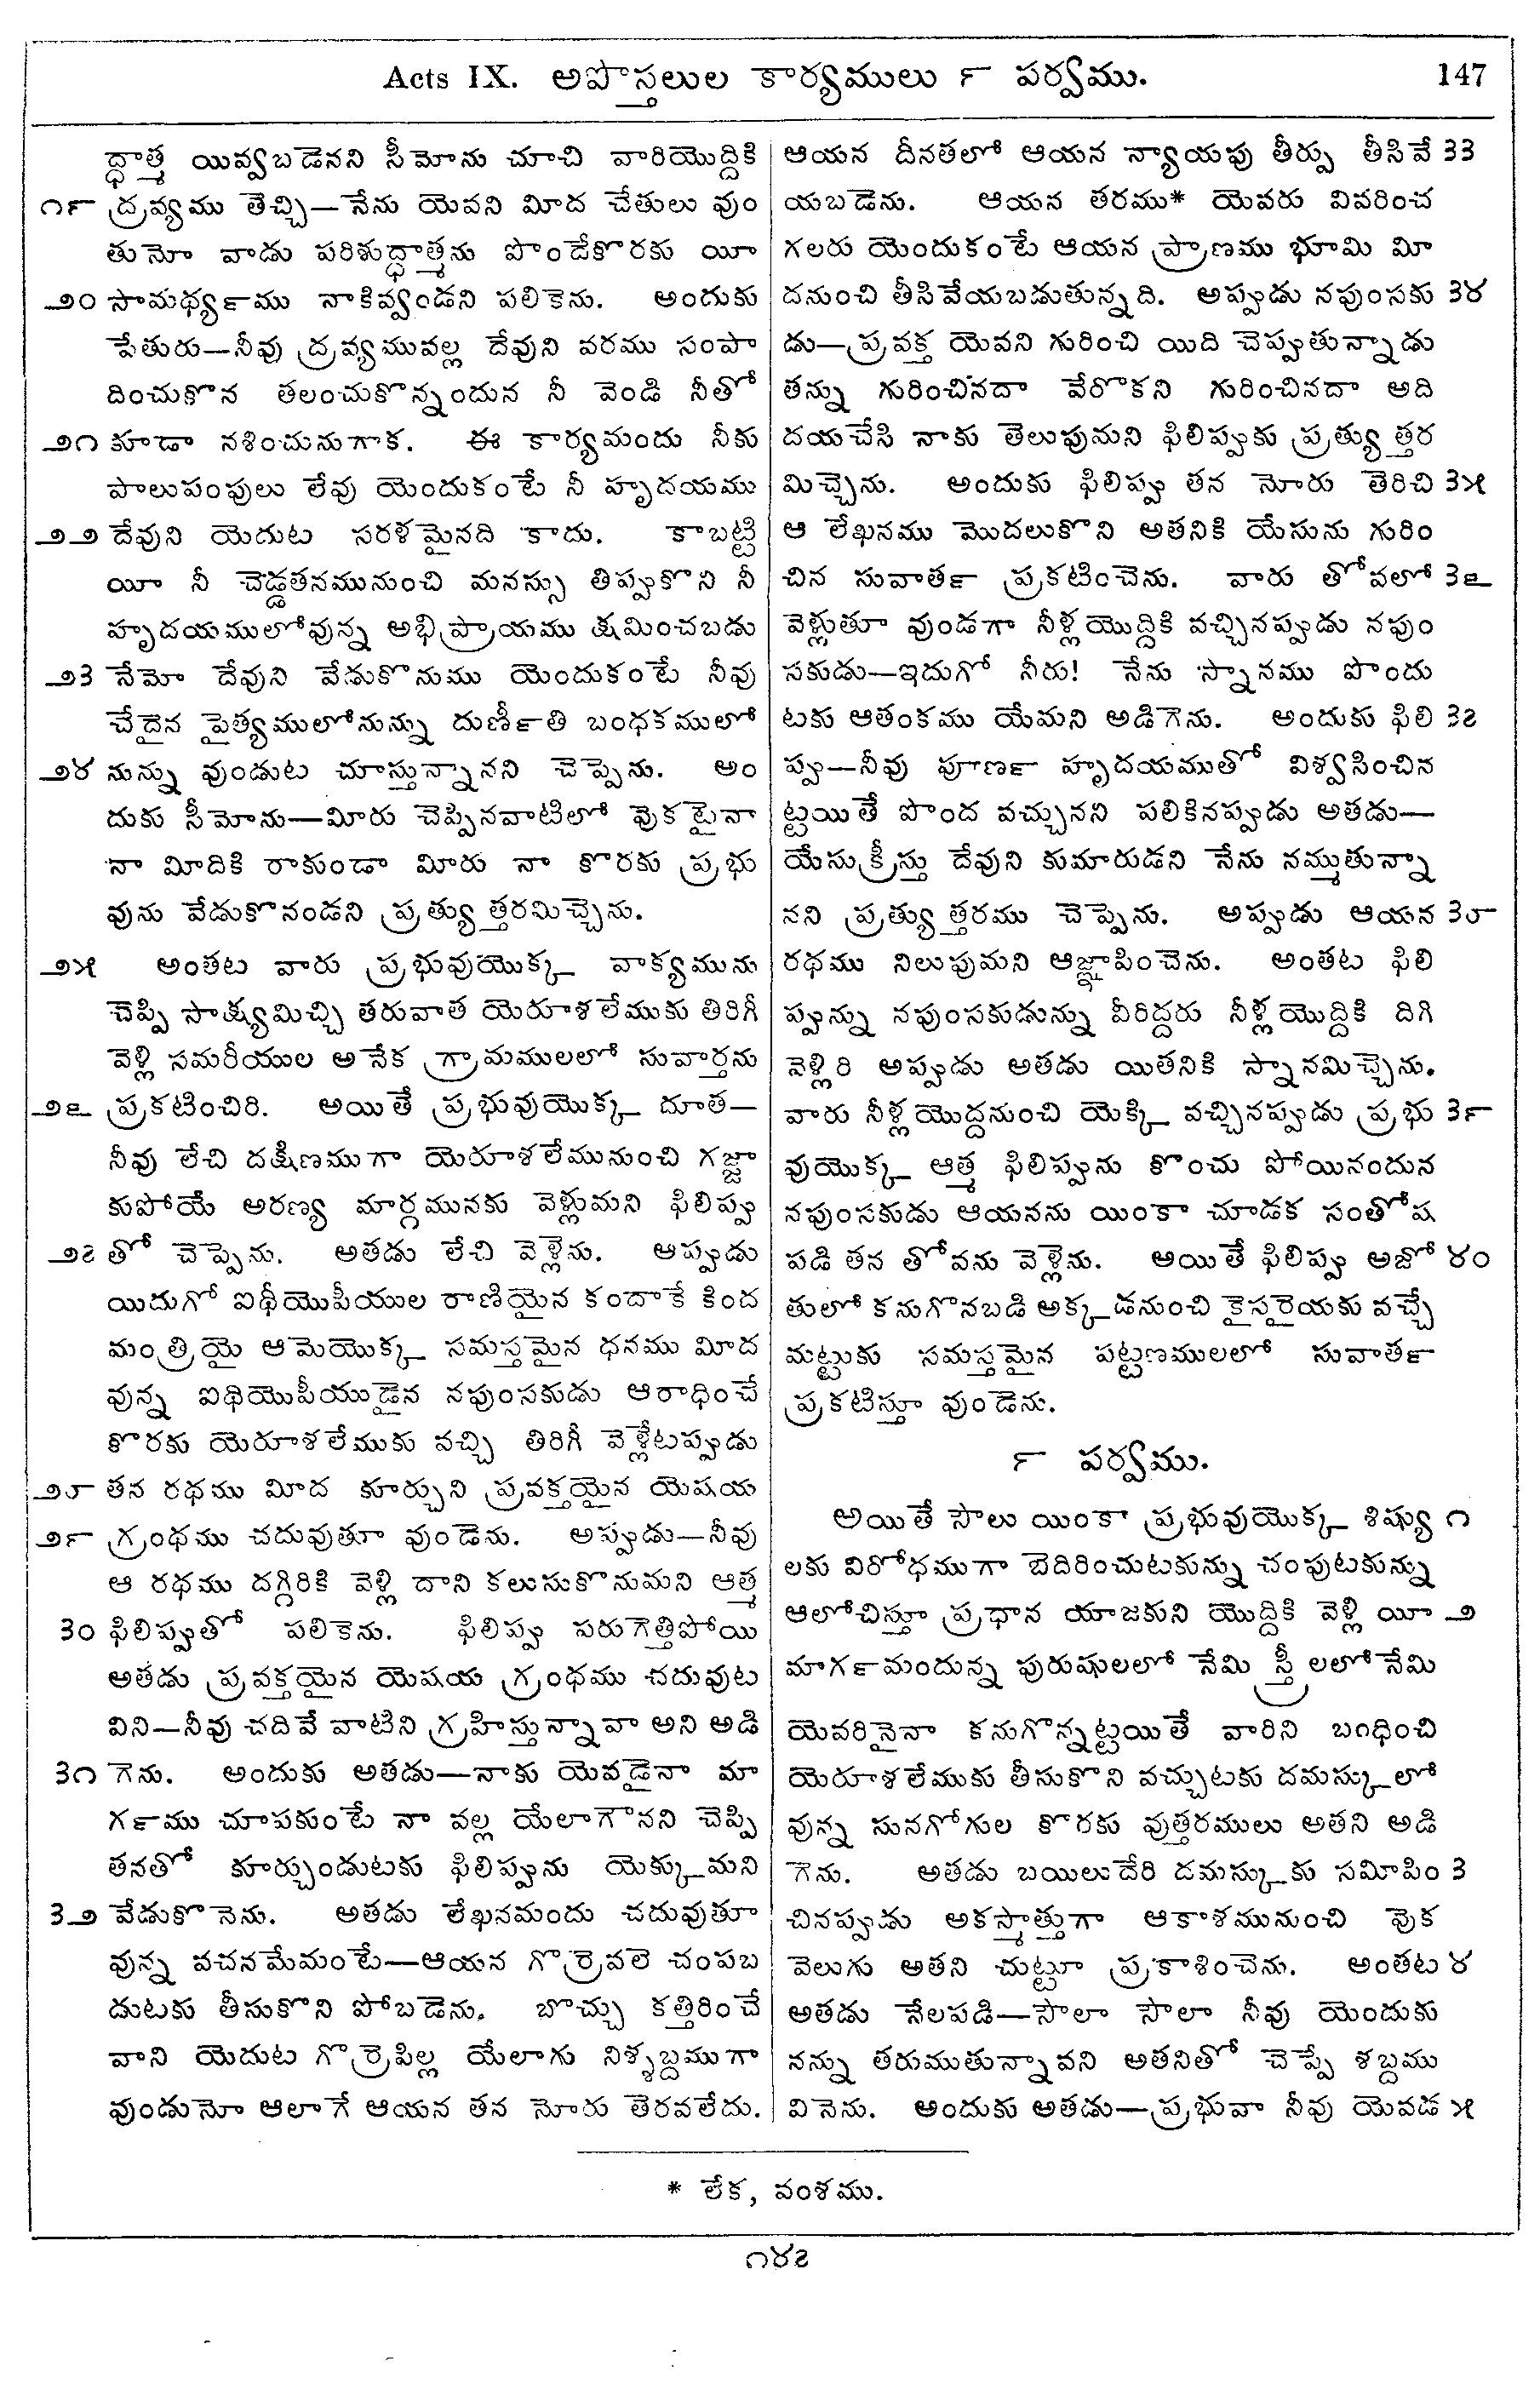 Acts IX. అపొస్తలుల కార్యములు ౯ పర్వము. 147
ద్ధాత్మ యివ్వబడెనని సీమోను చూచి వారియొద్దికి
౧౯ ద్రవ్యము తెచ్చి—నేను యెవని మీద చేతులు వుం
తునో వాడు పరిశుద్ధాత్మను పొందేకొరకు యీ
౨౦ సామథ్య౯ము నాకివ్వండని పలికెను. అందుకు
పేతురు—నీవు ద్రవ్యమువల్ల దేవుని వరము సంపా
దించుకొన తలంచుకొన్నందున నీ వెండి నీతో
౨౧ కూడా నశించునుగాక. ఈ కార్యమందు నీకు
పాలుపంపులు లేవు యెందుకంటే నీ హృదయము
౨౨ దేవుని యెదుట సరళమైనది కాదు. కాబట్టి
యీ నీ చెడ్డతనమునుంచి మనస్సు తిప్పుకొని నీ
హృదయములోవున్న అభిప్రాయము క్షమించబడు
౨౩ నేమో దేవుని వేడుకొనుము యెందుకంటే నీవు
చేదైన పైత్యములోనున్ను దుణీ౯తి బంధకములో
౨౪ నున్ను వుండుట చూస్తున్నానని చెప్పెను. అం
దుకు సీమోను—మీరు చెప్పినవాటిలో వుకటైనా
నా మీదికి రాకుండా మీరు నా కొరకు ప్రభు
వును వేడుకొనండని ప్రత్యుత్తరమిచ్చెను.
౨౫ అంతట వారు ప్రభువుయొక్క వాక్యమును
చెప్పి సాక్ష్యమిచ్చి తరువాత యెరూశలేముకు తిరిగీ
వెళ్లి సమరీయుల అనేక గ్రామములలో సువార్తను
౨౬ ప్రకటించిరి. అయితే ప్రభువుయొక్క దూత—
నీవు లేచి దక్షిణముగా యెరూశలేమునుంచి గజ్జా
కుపోయే అరణ్య మార్గమునకు వెళ్లుమని ఫిలిప్పు
౨౭ తో చెప్పెను. అతడు లేచి వెళ్లెను. అప్పుడు
యిదుగో ఐథీయొపీయుల రాణియైన కందాకే కింద
మంత్రియై ఆమెయొక్క సమస్తమైన ధనము మీద
వున్న ఐథియొపీయుడైన నపుంసకుడు ఆరాధించే
కొరకు యెరూశలేముకు వచ్చి తిరిగీ వెళ్లేటప్పుడు
౨౮ తన రథము మీద కూర్చుని ప్రవక్తయైన యెషయ
౨౯ గ్రంథము చదువుతూ వుండెను. అప్పుడు—నీవు
ఆ రథము దగ్గిరికి వెళ్లి దాని కలుసుకొనుమని ఆత్మ
౩౦ ఫిలిప్పుతో పలికెను. ఫిలిప్పు పరుగెత్తిపోయి
అతడు ప్రవక్తయైన యెషయ గ్రంథము చదువుట
విని—నీవు చదివే వాటిని గ్రహిస్తున్నావా అని అడి
౩౧ గెను. అందుకు అతడు—నాకు యెవడైనా మా
గ౯ము చూపకుంటే నా వల్ల యేలాగౌనని చెప్పి
తనతో కూర్చుండుటకు ఫిలిప్పును యెక్కుమని
౩౨ వేడుకొనెను. అతడు లేఖనమందు చదువుతూ
వున్న వచనమేమంటే—ఆయన గొర్రెవలె చంపబ
డుటకు తీసుకొని పోబడెను. బొచ్చు కత్తిరించే
వాని యెదుట గొర్రెపిల్ల యేలాగు నిశ్శబ్దముగా
వుండునో ఆలాగే ఆయన తన నోరు తెరవలేదు.
ఆయన దీనతలో ఆయన న్యాయపు తీర్పు తీసివే ౩౩
యబడెను. ఆయన తరము* యెవరు వివరించ
గలరు యెందుకంటే ఆయన ప్రాణము భూమి మీ
దనుంచి తీసివేయబడుతున్నది. అప్పుడు నపుంసకు ౩౪
డు—ప్రవక్త యెవని గురించి యిది చెప్పుతున్నాడు
తన్ను గురించినదా వేరొకని గురించినదా అది
దయచేసి నాకు తెలుపునుని ఫిలిప్పుకు ప్రత్యుత్తర
మిచ్చెను. అందుకు ఫిలిప్పు తన నోరు తెరిచి ౩౫
ఆ లేఖనము మొదలుకొని అతనికి యేసును గురిం
చిన సువాత౯ ప్రకటించెను. వారు తోవలో ౩౬
వెళ్లుతూ వుండగా నీళ్లయొద్దికి వచ్చినప్పుడు నపుం
సకుడు—ఇదుగో నీరు! నేను స్నానము పొందు
టకు ఆతంకము యేమని అడిగెను. అందుకు ఫిలి ౩౭
ప్పు—నీవు పూణ౯ హృదయముతో విశ్వసించిన
ట్టయితే పొంద వచ్చునని పలికినప్పుడు అతడు—
యేసుక్రీస్తు దేవుని కుమారుడని నేను నమ్ముతున్నా
నని ప్రత్యుత్తరము చెప్పెను. అప్పుడు ఆయన ౩౮
రథము నిలుపుమని ఆజ్ఞాపించెను. అంతట ఫిలి
ప్పున్ను నపుంసకుడున్ను వీరిద్దరు నీళ్లయొద్దికి దిగి
వెళ్లిరి అప్పుడు అతడు యితనికి స్నానమిచ్చెను.
వారు నీళ్లయొద్దనుంచి యెక్కి వచ్చినప్పుడు ప్రభు ౩౯
వుయొక్క ఆత్మ ఫిలిప్పును కొంచు పోయినందున
నపుంసకుడు ఆయనను యింకా చూడక సంతోష
పడి తన తోవను వెళ్లెను. అయితే ఫిలిప్పు అజో ౪౦
తులో కనుగొనబడి అక్కడనుంచి కైసరైయకు వచ్చే
మట్టుకు సమస్తమైన పట్టణములలో సువాత౯
ప్రకటిస్తూ వుండెను.
౯ పర్వము.
అయితే సౌలు యింకా ప్రభువుయొక్క శిష్యు ౧
లకు విరోధముగా బెదిరించుటకున్ను చంపుటకున్ను
ఆలోచిస్తూ ప్రధాన యాజకుని యొద్దికి వెళ్లి యీ ౨
మాగ౯మందున్న పురుషులలో నేమి స్త్రీలలో నేమి
యెవరినైనా కనుగొన్నట్టయితే వారిని బంధించి
యెరూశలేముకు తీసుకొని వచ్చుటకు దమస్కులో
వున్న సునగోగుల కొరకు వుత్తరములు అతని అడి
గెను. అతడు బయిలుదేరి దమస్కుకు సమీపిం ౩
చినప్పుడు అకస్మాత్తుగా ఆకాశమునుంచి వుక
వెలుగు అతని చుట్టూ ప్రకాశించెను. అంతట ౪
అతడు నేలపడి—సౌలా సౌలా నీవు యెందుకు
నన్ను తరుముతున్నావని అతనితో చెప్పే శబ్దము
వినెను. అందుకు అతడు—ప్రభువా నీవు యెవడ ౫
* లేక, వంశము.
౧౪౭